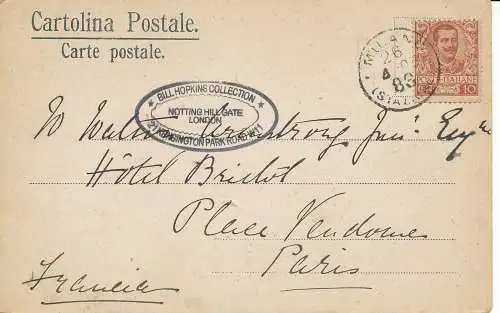 Cartolina Postale.
Carte postale.
MILANO
26
4 03
(STAZ
POSTE ITALIANE
10
★ BILL HOPKINS COLLECTION ★
NOTTING HILL GATE
LONDON
KENSINGTON PARK ROAD W.11
To Walter Armstrong Junr. Esqre
Hôtel Bristol
Place Vendome
Paris
Francia